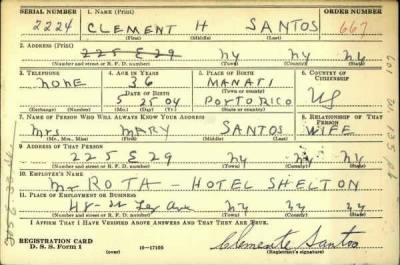 SERIAL NUMBER 1. NAME (Print) ORDER NUMBER
2224 CLEMENT H SANTOS 667
(First) (Middle) (Last)
2. ADDRESS (Print)
225 E 29 NY NY NY
(Number and street or R. F. D. number) (Town) (County) (State)
3. TELEPHONE 4. AGE IN YEARS 5. PLACE OF BIRTH 6. COUNTRY OF CITIZENSHIP
NONE 36 MANATI
DATE OF BIRTH (Town or county)
5 25 04 PORTO RICO US
(Exchange) (Number) (Mo.) (Day) (Yr.) (State or country)
7. NAME OF PERSON WHO WILL ALWAYS KNOW YOUR ADDRESS 8. RELATIONSHIP OF THAT PERSON
Mrs MARY SANTOS WIFE
(Mr., Mrs., Miss) (First) (Middle) (Last)
9. ADDRESS OF THAT PERSON
225 E 29 NY NY NY
(Number and street or R. F. D. number) (Town) (County) (State)
10. EMPLOYER'S NAME
Mr ROTA - HOTEL SHELTON
11. PLACE OF EMPLOYMENT OR BUSINESS
48 - Lex Ave NY NY NY
(Number and street or R. F. D. number) (Town) (County) (State)
I AFFIRM THAT I HAVE VERIFIED ABOVE ANSWERS AND THAT THEY ARE TRUE.
REGISTRATION CARD
D. S. S. Form 1 16—17105 Clemente Santos
(Registrant's signature)